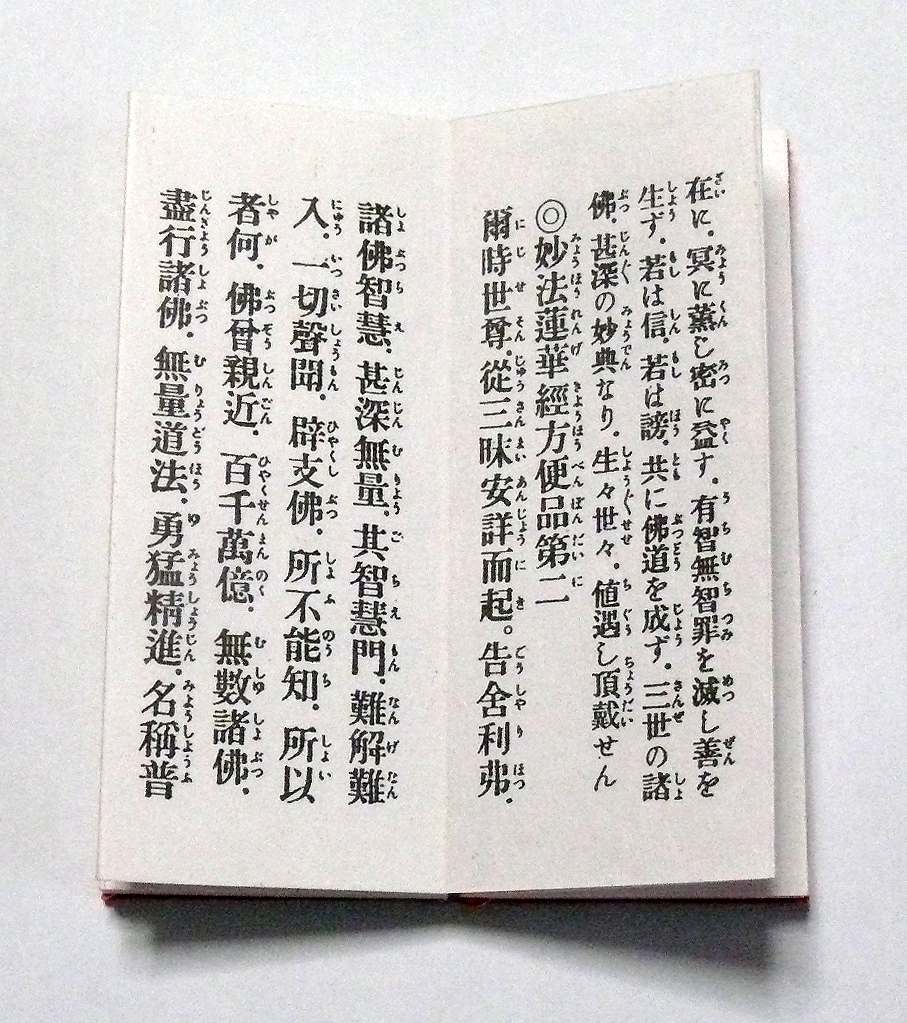 在に、冥に薫じ密に益す。有智無智罪を滅し善を
生ず。若は信、若は謗、共に佛道を成ず。三世の諸
佛、甚深の妙典なり。生々世々、値遇し頂戴せん
◎妙法蓮華經方便品第二
爾時世尊。從三昧安詳而起。告舍利弗。
諸佛智慧。甚深無量。其智慧門。難解難
入。一切聲聞。辟支佛。所不能知。所以
者何。佛曾親近。百千萬億。無數諸佛。
盡行諸佛。無量道法。勇猛精進。名稱普